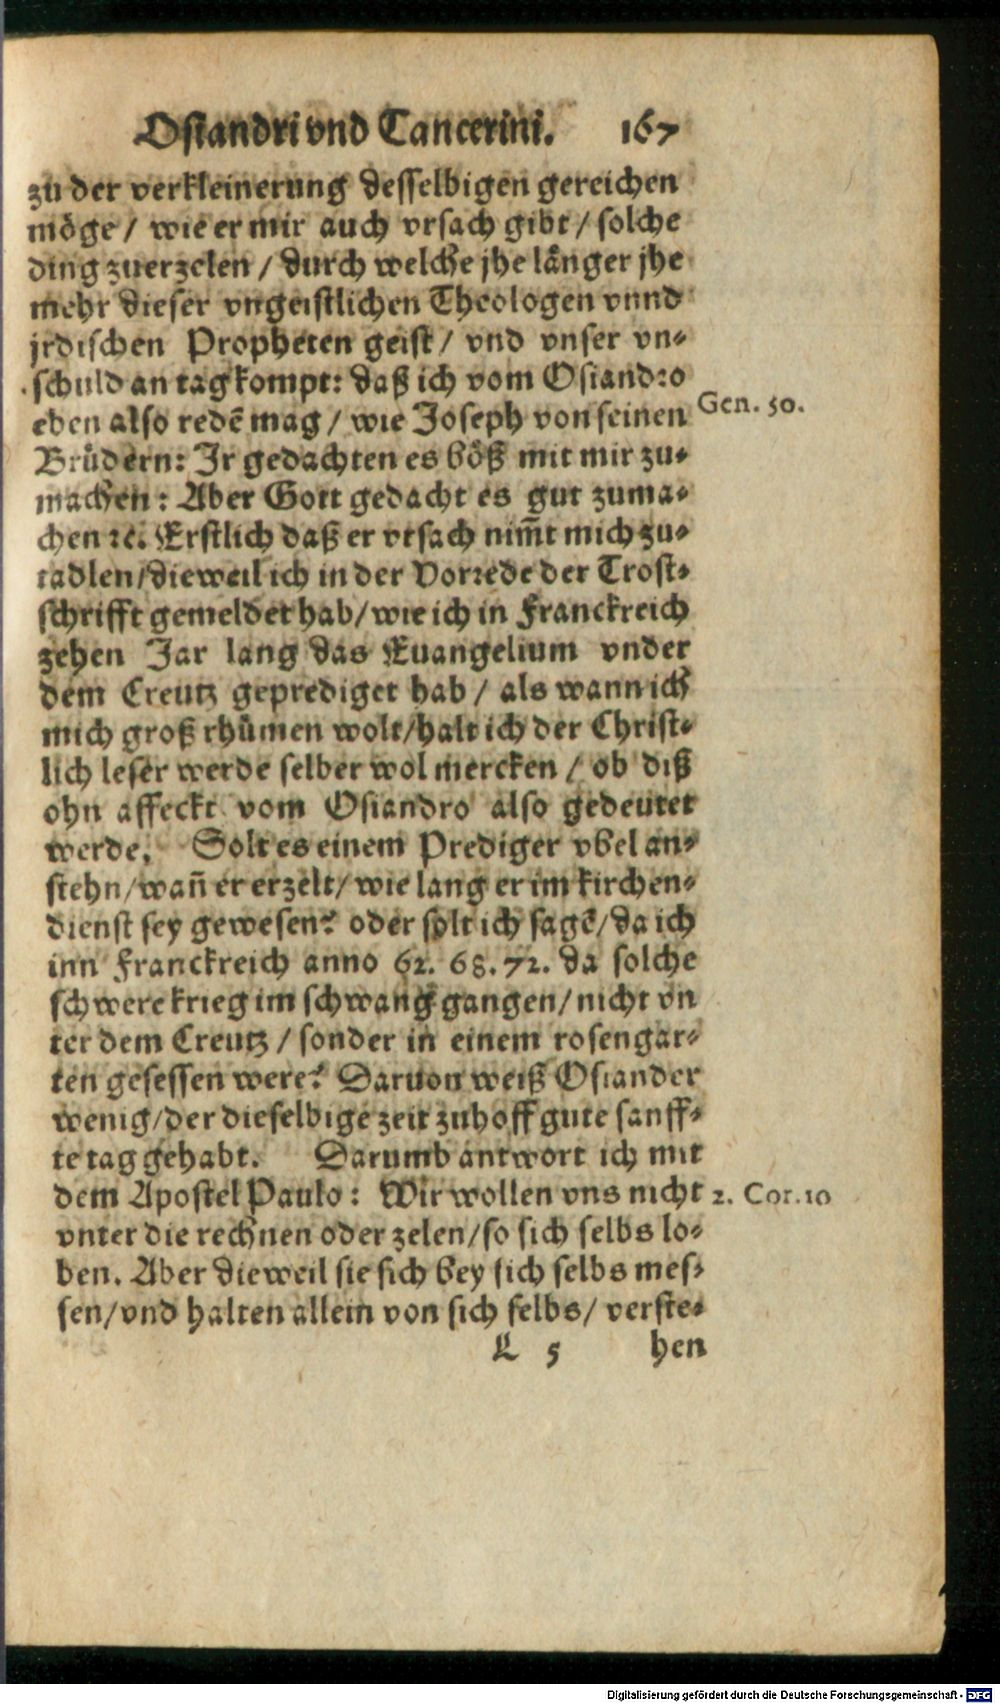 Osiandri vnd Tancerini. 167
zu der verkleinerung desselbigen gereichen
möge / wie er mir auch vrsach gibt / solche
ding zuerzelen / durch welche jhe länger jhe
mehr dieser vngeistlichen Theologen vnnd
jrdischen Propheten geist / vnd vnser vn-
schuld an tag kompt: daß ich vom Osiandro
eben also redē mag / wie Joseph von seinen Gen. 50.
Brüdern: Ir gedachten es böß mit mir zu-
machen: Aber Gott gedacht es gut zuma-
chen ꝛc. Erstlich daß er vrsach nim̄t mich zu-
tadlen / dieweil ich in der Vorrede der Trost-
schrifft gemeldet hab / wie ich in Franckreich
zehen Jar lang das Euangelium vnder
dem Creutz geprediget hab / als wann ich
mich groß rhümen wolt / halt ich der Christ-
lich leser werde selber wol mercken / ob diß
ohn affeckt vom Osiandro also gedeutet
werde. Solt es einem Prediger vbel an-
stehn / wañ er erzelt / wie lang er im kirchen-
dienst sey gewesen? oder solt ich sagē / da ich
inn Franckreich anno 62. 68. 72. da solche
schwere krieg im schwang gangen / nicht vn
ter dem Creutz / sonder in einem rosengar-
ten gesessen were? Daruon weiß Osiander
wenig / der dieselbige zeit zu hoff gute sanff-
te tag gehabt. Darumb antwort ich mit
dem Apostel Paulo: Wir wollen vns nicht 2. Cor. 10
vnter die rechnen oder zelen / so sich selbs lo-
ben. Aber dieweil sie sich bey sich selbs mes-
sen / vnd halten allein von sich selbs / verste-
L 5 hen
Digitalisierung gefördert durch die Deutsche Forschungsgemeinschaft - DFG